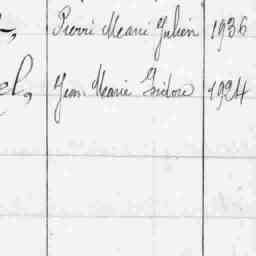 Pierre Marie Julien 1936
el, Jean Marie Isidore 1924